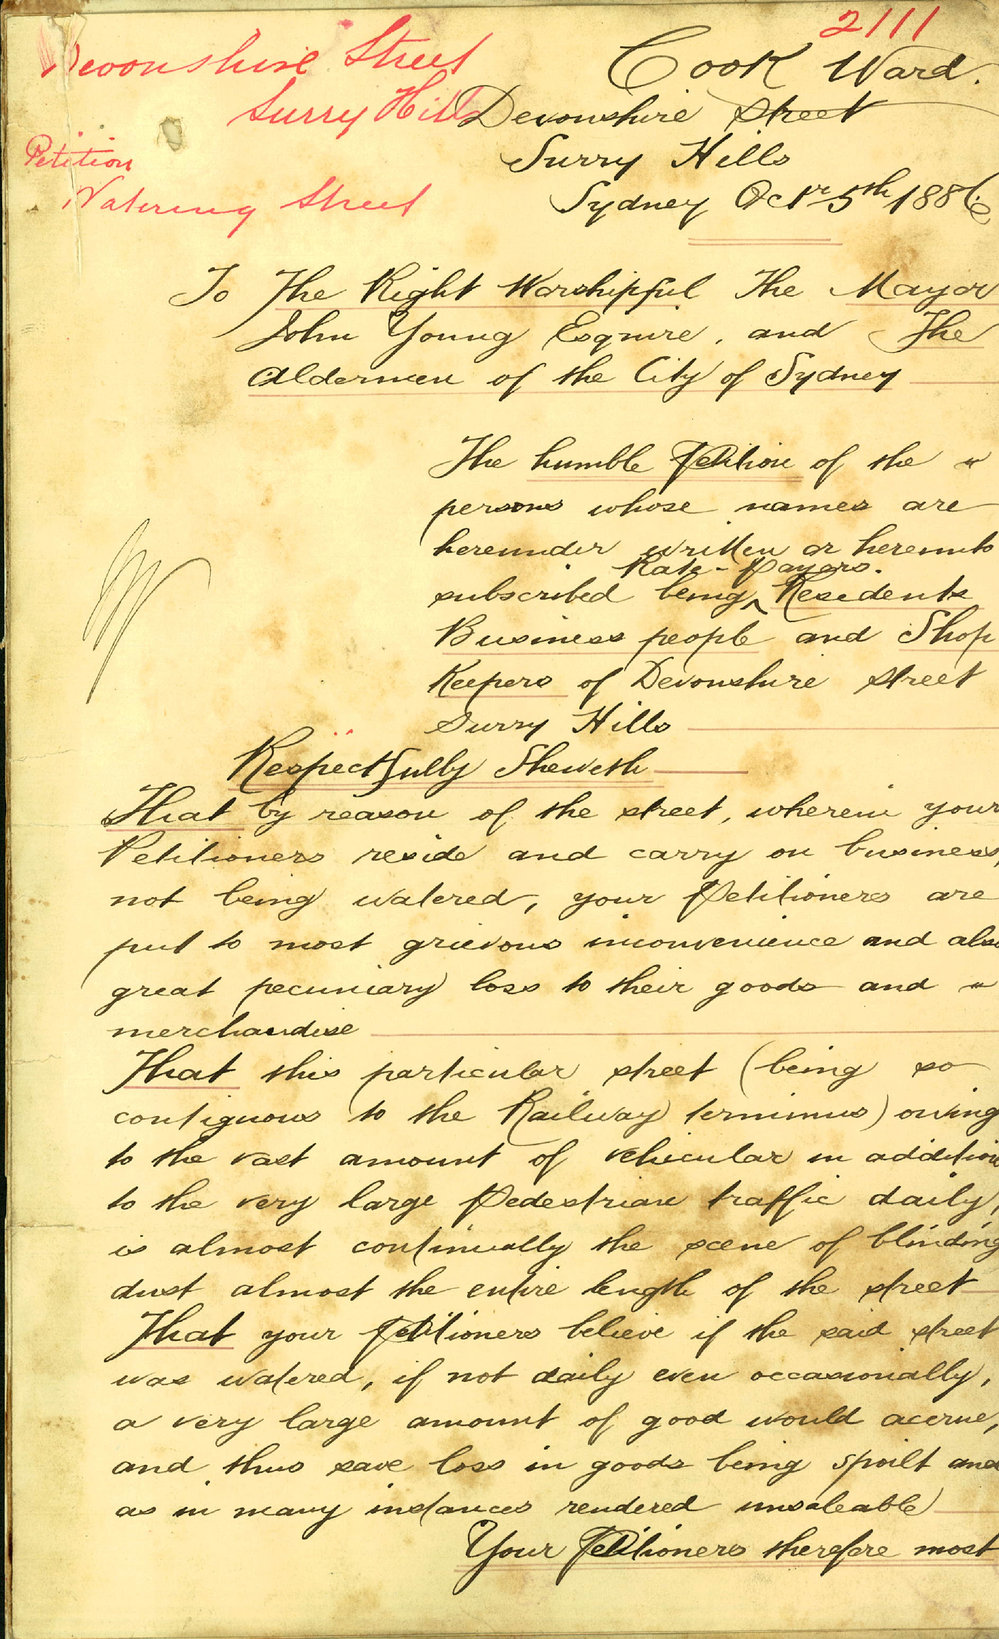 2111
Devonshire Street
Surry Hills
Petition
Watering Street
Cook Ward.
Devonshire Street
Surry Hills
Sydney Octr 5th 1886
To The Right Worshipful The Mayor
John Young Esquire, and The
Aldermen of the City of Sydney
The humble Petition of the "
persons whose names are
hereunder written or hereunto
Rate-Payers.
subscribed being ‸ Residents
Business people and Shop
Keepers of Devonshire street
Surry Hills
Respectfully Sheweth
That by reason of the street, wherein your
Petitioners reside and carry on business,
not being watered, your Petitioners are
put to most grievous inconvenience and also
great pecuniary loss to their goods and "
merchandise
That this particular street (being so
contiguous to the Railway terminus) owing
to the vast amount of vehicular in addition
to the very large Pedestrian traffic daily,
is almost continually the scene of blinding
dust almost the entire length of the street
That your Petitioners believe if the said street
was watered, if not daily even occasionally,
a very large amount of good would accrue,
and thus save loss in goods being spoilt and
as in many instances rendered unsaleable
Your Petitioners therefore most